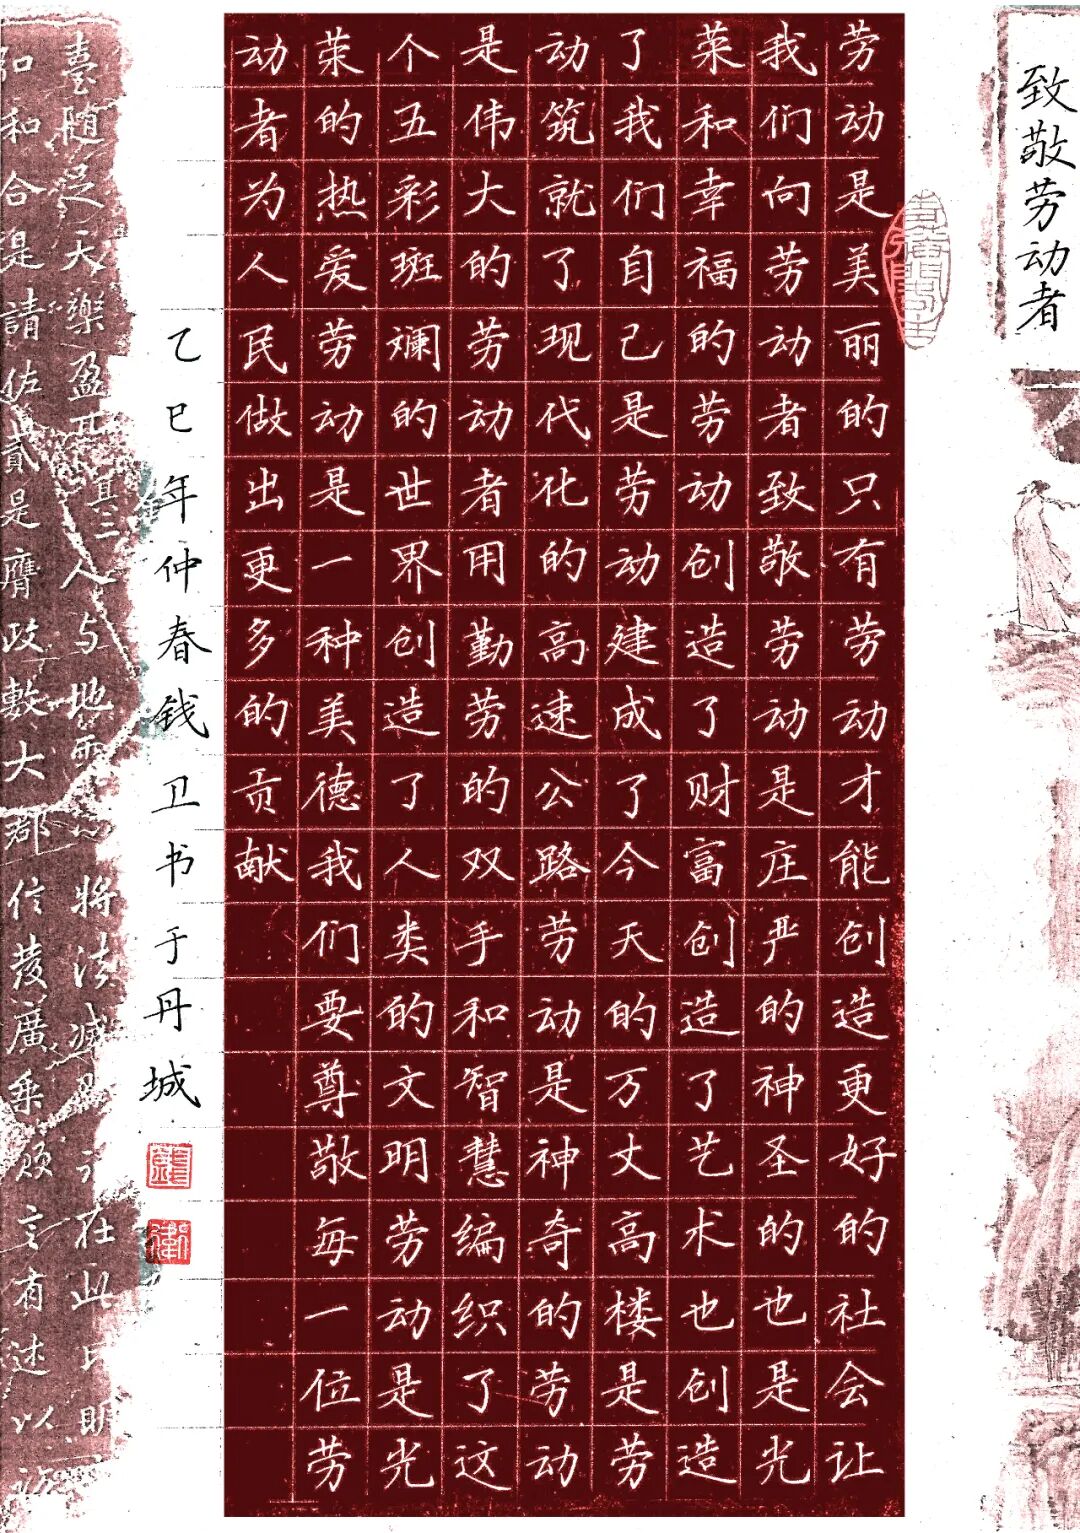 致敬劳动者
劳动是美丽的只有劳动才能创造更好的社会让
我们向劳动者致敬劳动是庄严的神圣的也是光
荣和幸福的劳动创造了财富创造了艺术也创造
了我们自己是劳动建成了今天的万丈高楼是劳
动筑就了现代化的高速公路劳动是神奇的劳动
是伟大的劳动者用勤劳的双手和智慧编织了这
个五彩斑斓的世界创造了人类的文明劳动是光
荣的热爱劳动是一种美德我们要尊敬每一位劳
动者为人民做出更多的贡献
乙巳年仲春钱卫书于丹城